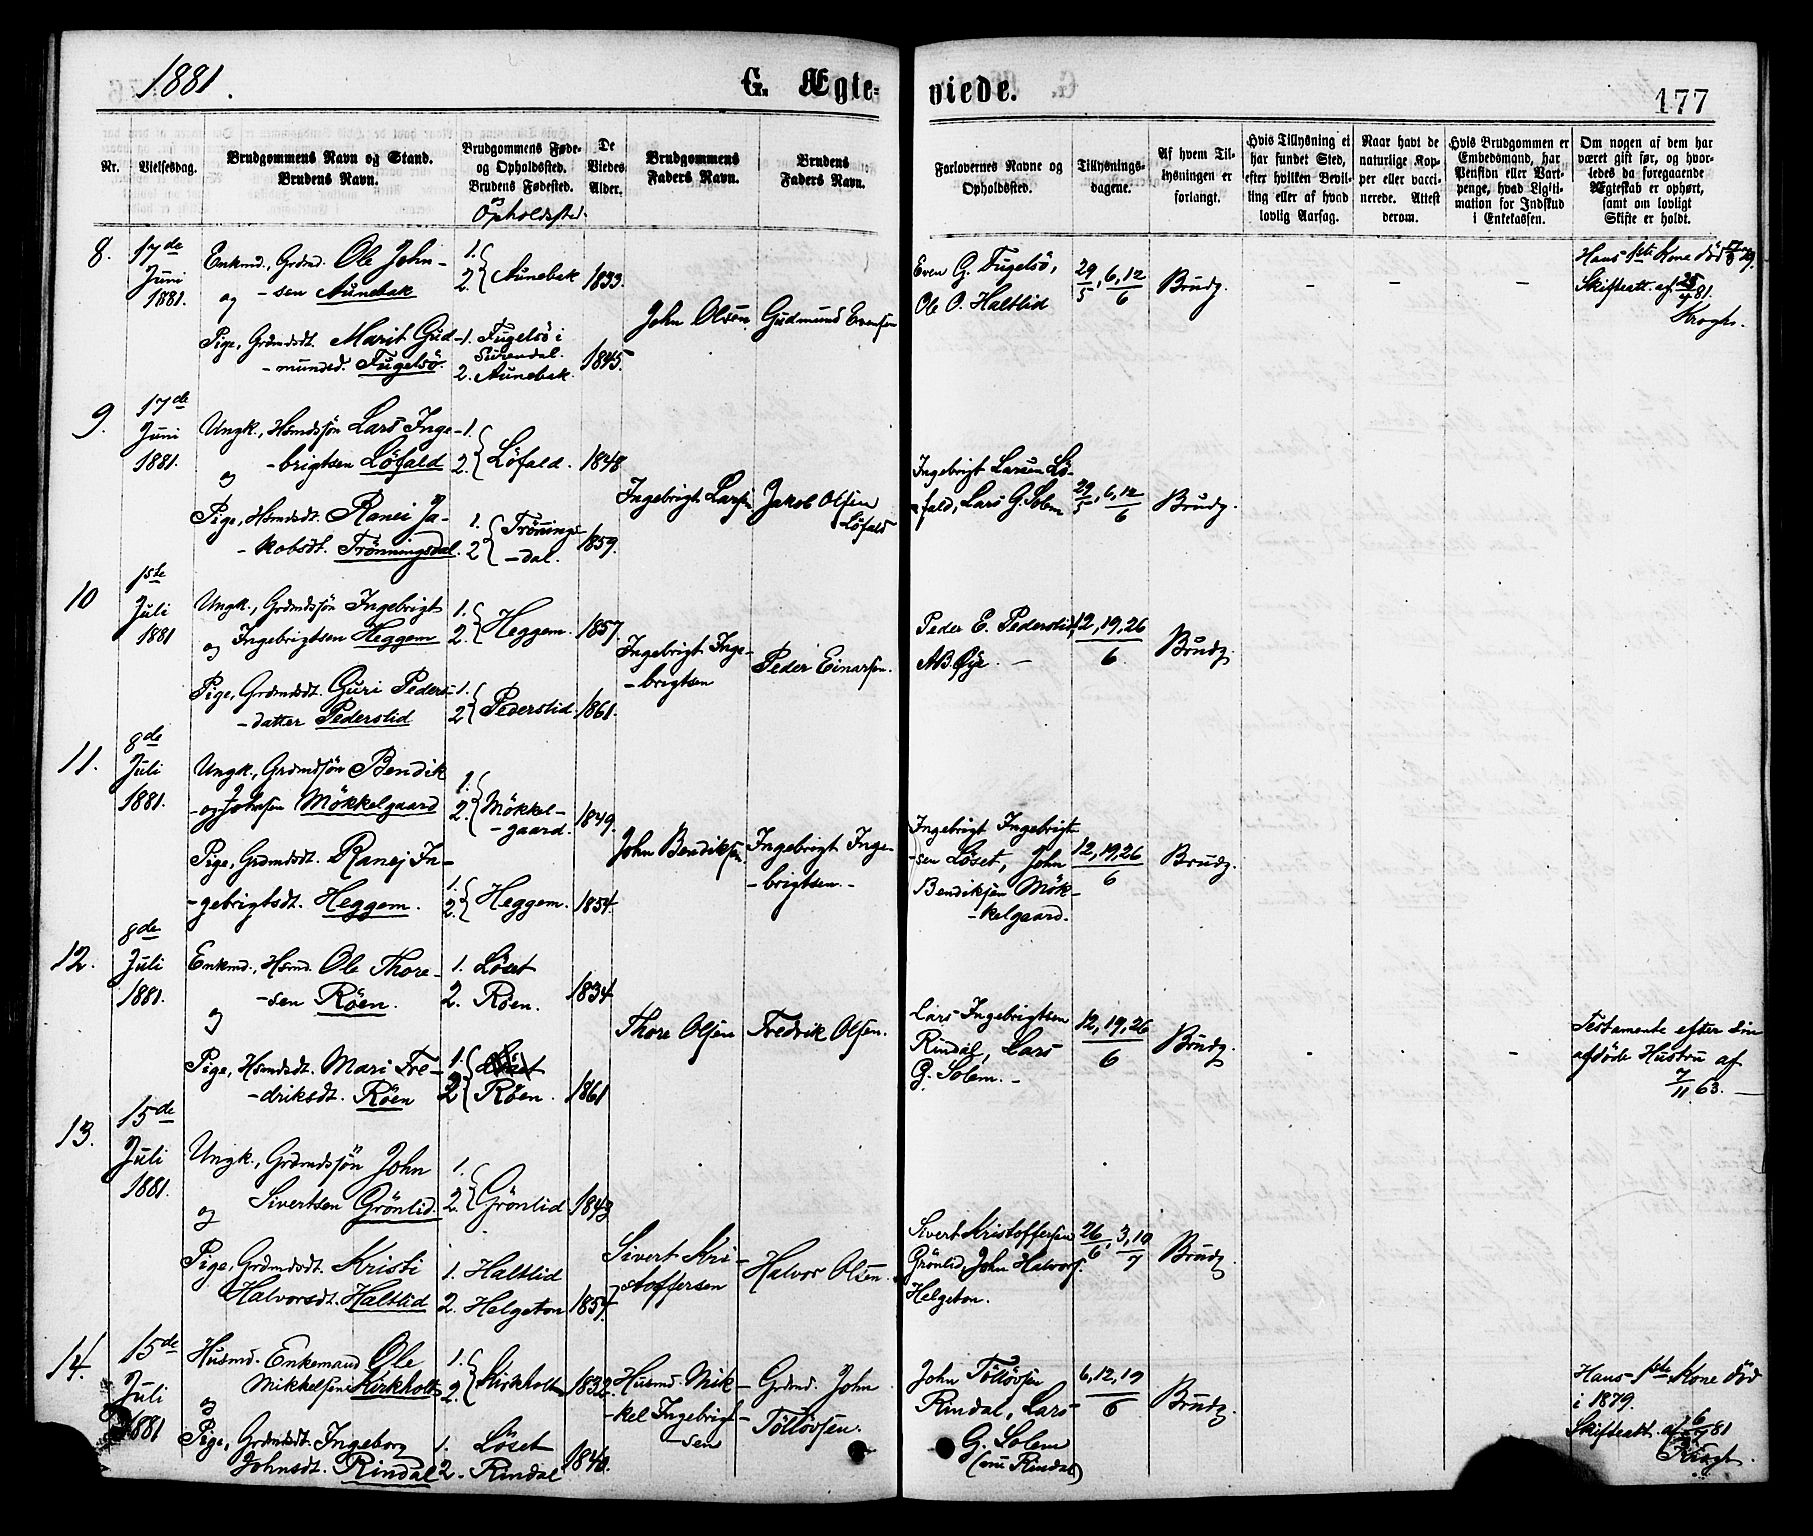 1881.
G. Ægte-
viede.
177
Nr.
Vielsesdag.
Brudgommens Navn og Stand.
Brudens Navn.
Brudgommens Føde-
og Opholdssted.
Brudens Fødested.
og
Opholdssted.
De
Viedes
Alder.
Brudgommens
Faders Navn.
Brudens
Faders Navn.
Forlovernes Navne og
Opholdssted.
Tillysnings-
dagene.
Af hvem Til-
lysningen er
forlangt.
Hvis Tillysning ei
har fundet Sted,
efter hvilken Bevil-
ling eller af hvad
lovlig Aarsag.
Naar havt de
naturlige Kop-
per eller vacci-
nerede. Attest
derom.
Hvis Brudgommen er
Embedsmand, har
Pension eller Vart-
penge, hvad Ligiti-
mation for Indskud
i Enkekassen.
Om nogen af dem har
været gift før, og hvor-
ledes da foregaaende
Ægteskab er ophørt,
samt om lovligt
Skifte er holdt.
8.
17de
Juni
1881.
Enkmd., Grdmd. Ole John-
og -sen Aunebak
Pige, Grdmdsdt. Marit Gud-
-mundsd. Fugelsö.
1.
2. Aunebak
1. Fugelsö i
Surendal.
2. Aunebak.
1833.
1845.
John Olsen
Gudmund Evensen
Even G. Fugelsö,
Ole O. Haltlid
29/5, 6,12/6
Brudg.
- - -
Hans 1ste Kone död 79.
Skifteatt. af 25/4 81.
Krogh.
9.
17de
Juni
1881.
Ungk., Hsmdssön Lars Inge-
og -brigtsen Löfald
Pige, Hsmdsdt. Ranei Ja-
-kobsdt. Trönningsdal.
1.
2. Löfald.
1.
2. Trönnings-
-dal.
1848
1859.
Ingebrigt Larsen
Jakob Olsen
Löfald
Ingebrigt Larsen Lö-
-fald, Lars G. Solem
29/5, 6,12/6
Brudg.
10
1ste
Juli
1881
Ungk., Grdmdssön Ingebrigt
og Ingebrigtsen Heggem
Pige, Grdmdsdt. Guri Peders-
-datter Pederslid
1.
2. Heggem.
1.
2. Pederslid.
1857.
1861.
Ingebrigt Inge-
-brigtsen
Peder Einarsen.
Peder E. Pederslid,
A.B. Øye. -
12,19,26/6
Brudg.
11.
8de
Juli
1881.
Ungk., Grdmdssön Bendik
-og Johnsen Mökkelgaard
Pige, Grdmdsdt. Ranej In-
-gebrigtsdt. Heggem.
1.
2. Mökkel-
-gaard.
1.
2. Heggem.
1849.
1854.
John Bendiksen
Ingebrigt Inge-
-brigtsen. -
Ingebrigt Ingebrigt-
-sen Löset, John
Bendiksen Mök-
-kelgaard.
12,19,26/6
Brudg.
12.
8de
Juli
1881.
Enkmd., Hsmd. Ole Thore-
-sen Röen.
og
Pige, Hsmdsdt. Mari Fre-
-driksdt. Röen
1. Löset
2. Röen.
1. Löset
2. Röen.
1834.
1861
Thore Olsen
Fredrik Olsen.
Lars Ingebrigtsen
Rindal, Lars
G. Solem. -
12,19,26/6
Brudg.
- -
Testamente efter sin
afdöde Hustru af
7/11 63. -
13.
15de
Juli
1881.
Ungk., Grdmdssön John
og Sivertsen Grönlid.
Pige, Grdmdsdt. Kristi
Halvorsdt. Haltlid
1.
2. Grönlid
1. Haltlid
2. Helgeton
1843
1857.
Sivert Kri-
stoffersen
Halvor Olsen.
Sivert Kristoffersen
Grönlid, John Halvors.
Helgeton.
26/6, 3,10/7
Brudg.
14.
15de
Juli
1881
Husmd. Enkemand Ole
Mikkelsen Kirkholt
og
Pige, Grdmdsdt. Ingeborg
Johnsdt. Rindal
1.
2. Kirkholt
1. Löset
2. Rindal
1832.
1840.
Husmd. Mik-
-kel Ingebrigt-
-sen
Grdmd. John
Töllövsen.
John Töllövsen
Rindal, Lars
G. Solem
(nu Rindal)
6,12,19/6
Brudg.
Hans 1ste Kone död
i 1879.
Skifteatt. af 6/7 81
Krogh.